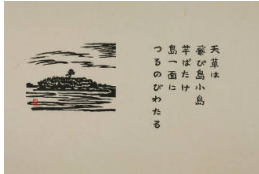 天草は
飛び島小島
芋ばたけ
島一面に
つるのびわたる